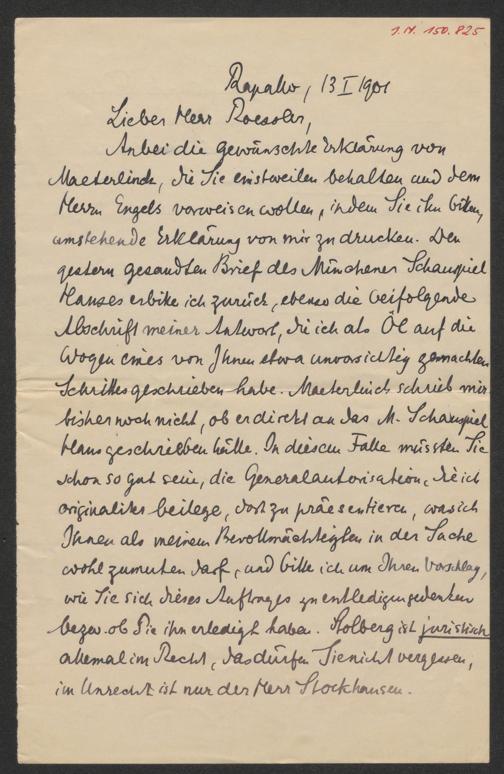 I.N. 150.825
Rapallo, 13 I 1901
Lieber Herr Roessler,
Anbei die gewünschte Erklärung von
Maeterlinck, die Sie einstweilen behalten und dem
Herrn Engels vorweisen wollen, indem Sie ihn bitten,
umstehende Erklärung von mir zu drucken. Den
gestern gesandten Brief des Münchener Schauspiel
Hauses erbitte ich zurück, ebenso die beifolgende
Abschrift meiner Antwort, die ich als Öl auf die
Wogen eines von Ihnen etwa unvorsichtig gemachten
Schrittes geschrieben habe. Maeterlinck schrieb mir
bisher noch nicht, ob er direkt an das M. Schauspiel
Haus geschrieben hätte. In diesem Falle müssten Sie
schon so gut sein, die Generalautorisation, die ich
originaliter beilege, dort zu präsentieren, was ich
Ihnen als meinem Bevollmächtigten in der Sache
wohl zumuten darf, und bitte ich um Ihren Vorschlag,
wie Sie sich dieses Auftrages zu entledigen gedenken
bezw. ob Sie ihn erledigt haben. Stolberg ist juristisch
allemal im Recht, das dürfen Sie nicht vergessen,
im Unrecht ist nur der Herr Stockhausen.